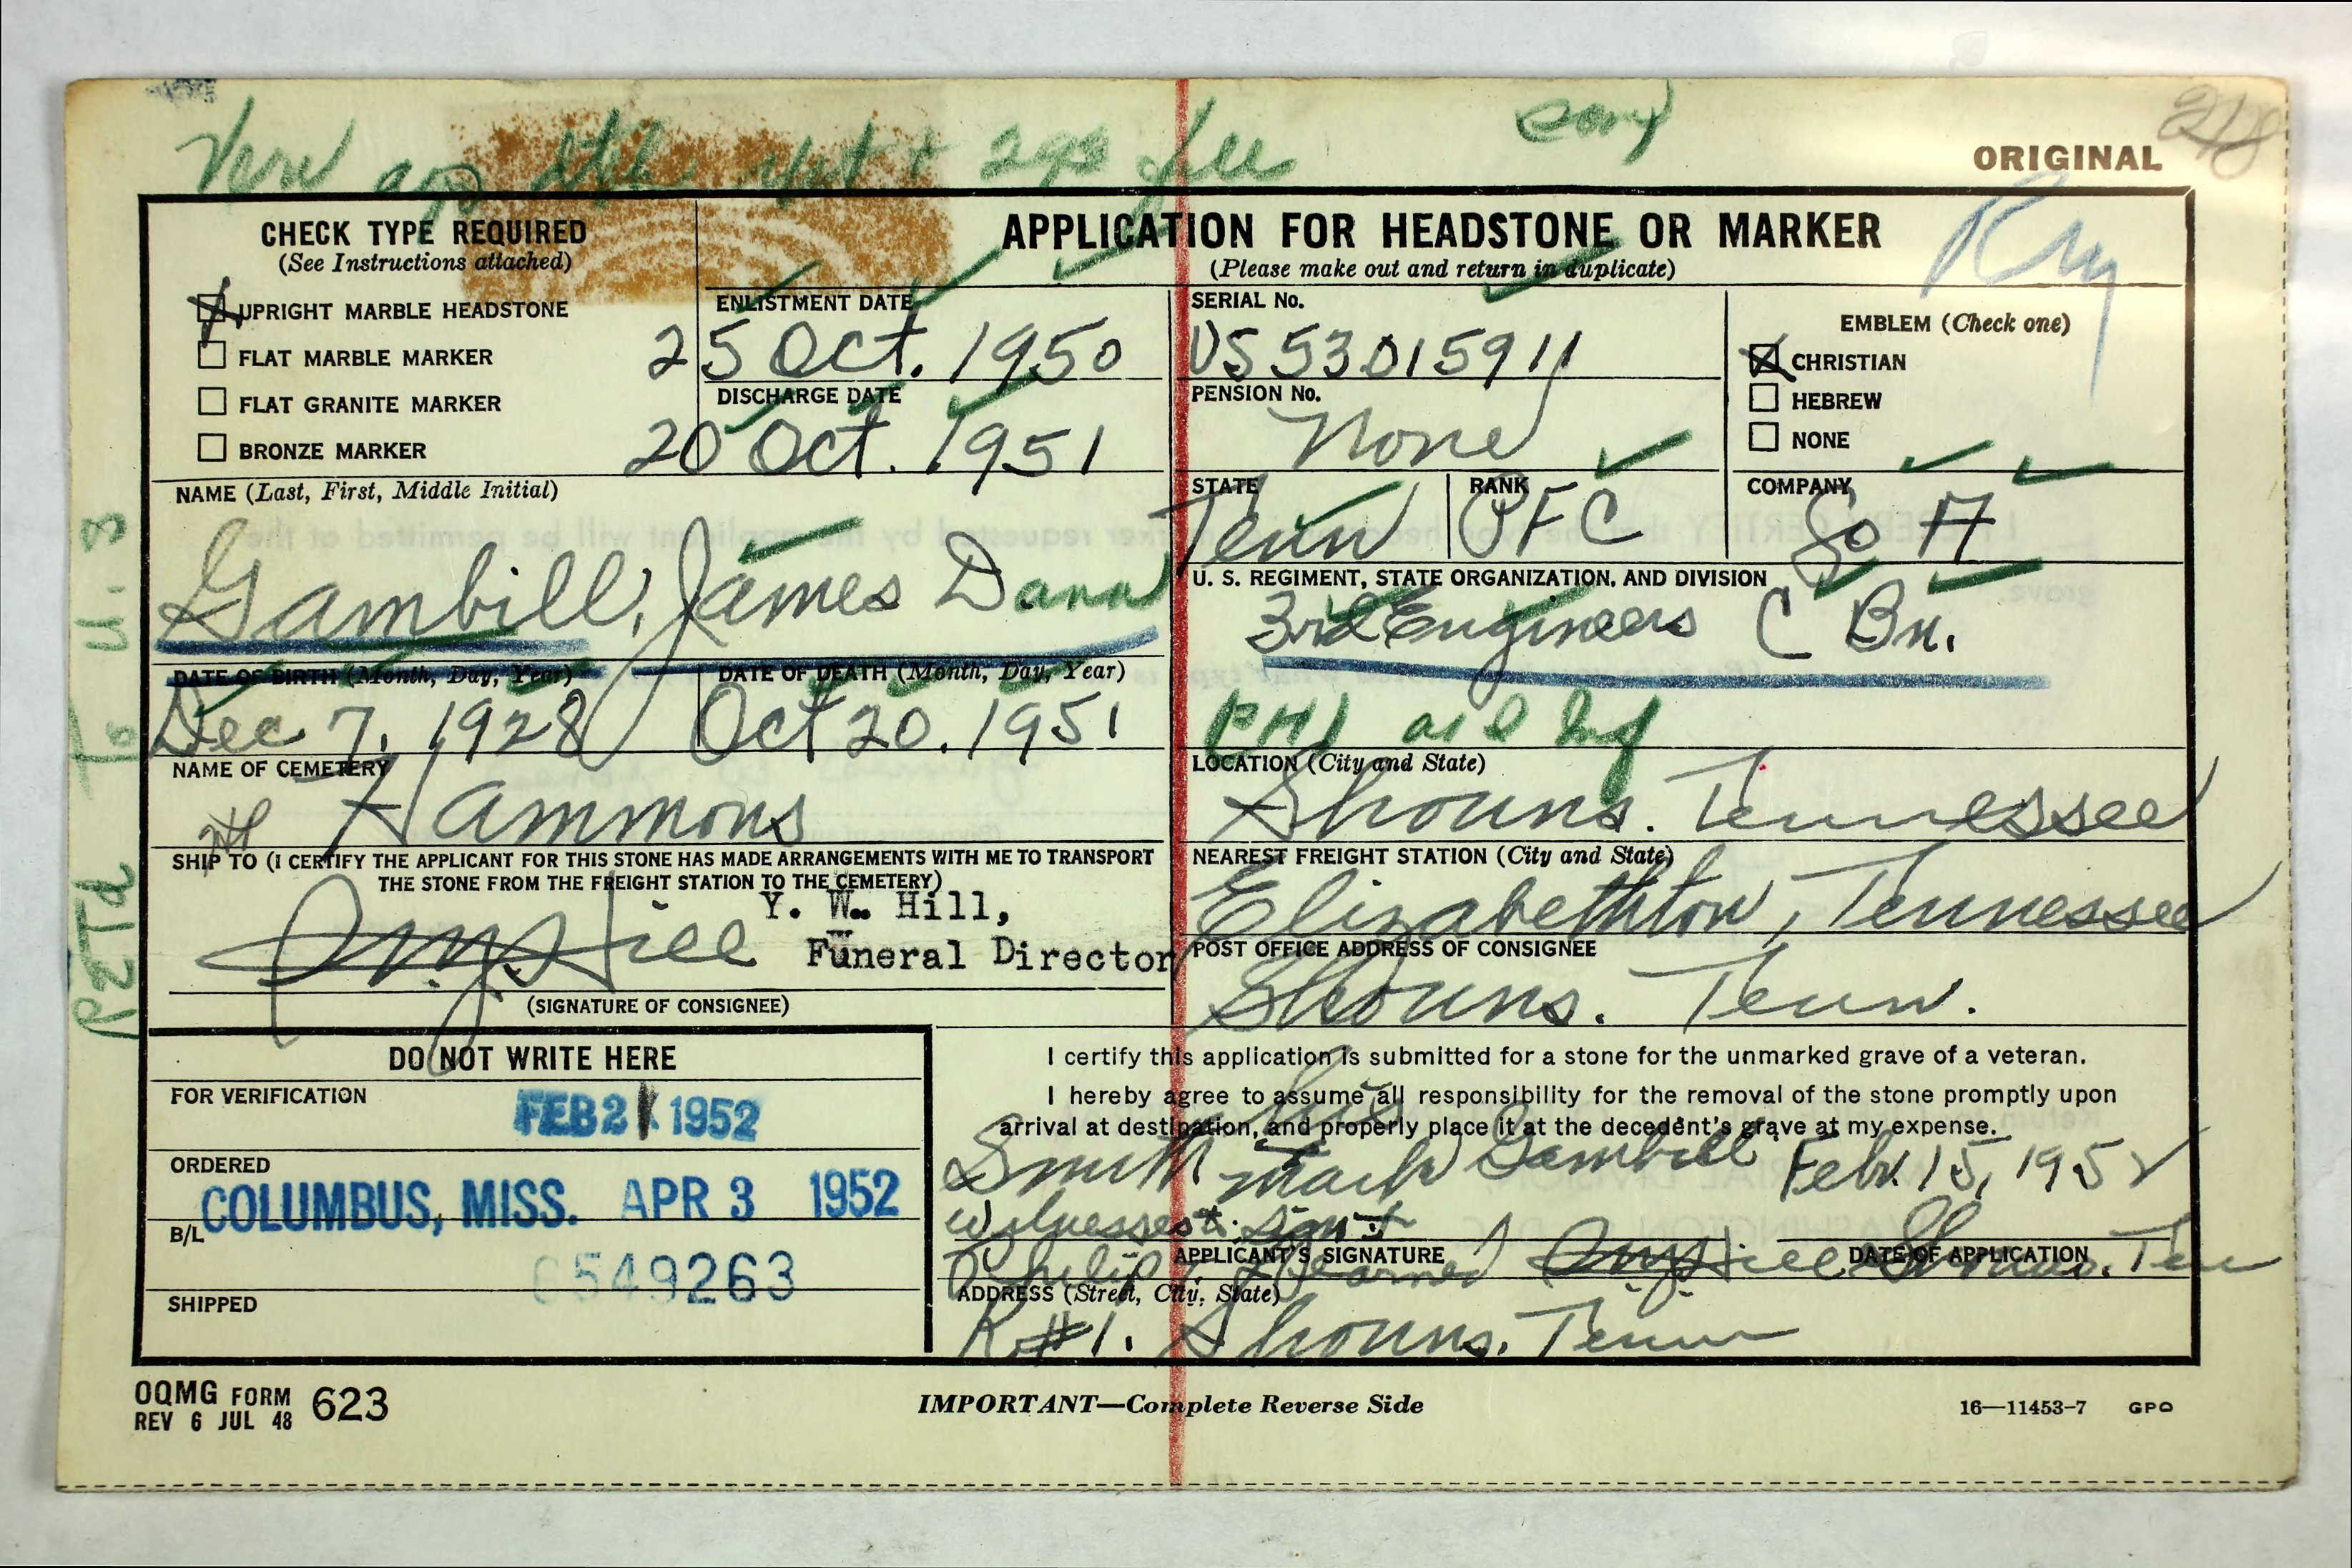 ORIGINAL
CHECK TYPE REQUIRED
(See Instructions attached)
UPRIGHT MARBLE HEADSTONE
FLAT MARBLE MARKER
FLAT GRANITE MARKER
BRONZE MARKER
APPLICATION FOR HEADSTONE OR MARKER
(Please make out and return in duplicate)
ENLISTMENT DATE
25 Oct. 1950
DISCHARGE DATE
20 Oct. 1951
SERIAL No.
US 53015911
PENSION No.
None
EMBLEM (Check one)
CHRISTIAN
HEBREW
NONE
NAME (Last, First, Middle Initial)
Gambill, James Dann
STATE
Tenn
RANK
PFC
COMPANY
Co A
U. S. REGIMENT, STATE ORGANIZATION, AND DIVISION
3rd Engineers C Bn.
DATE OF BIRTH (Month, Day, Year)
Dec 7, 1928
DATE OF DEATH (Month, Day, Year)
Oct 20. 1951
NAME OF CEMETERY
Hammons
LOCATION (City and State)
Shouns. Tennessee
SHIP TO (I CERTIFY THE APPLICANT FOR THIS STONE HAS MADE ARRANGEMENTS WITH ME TO TRANSPORT
THE STONE FROM THE FREIGHT STATION TO THE CEMETERY)
Y. W. Hill,
Funeral Director
(SIGNATURE OF CONSIGNEE)
NEAREST FREIGHT STATION (City and State)
Elizabethton, Tennessee
POST OFFICE ADDRESS OF CONSIGNEE
Shouns. Tenn.
DO NOT WRITE HERE
FOR VERIFICATION
FEB 21 1952
ORDERED
COLUMBUS, MISS. APR 3 1952
B/L
6549263
SHIPPED
I certify this application is submitted for a stone for the unmarked grave of a veteran.
I hereby agree to assume all responsibility for the removal of the stone promptly upon
arrival at destination, and properly place it at the decedent's grave at my expense.
his
Smith mark Gambill Feb. 15, 1952
Witnesses
APPLICANT'S SIGNATURE
DATE OF APPLICATION
Shouns. Ten
ADDRESS (Street, City, State)
R#1. Shouns. Tenn
OQMG FORM 623
REV 6 JUL 48
IMPORTANT—Complete Reverse Side
16—11453-7 GPO
Retd To U.S